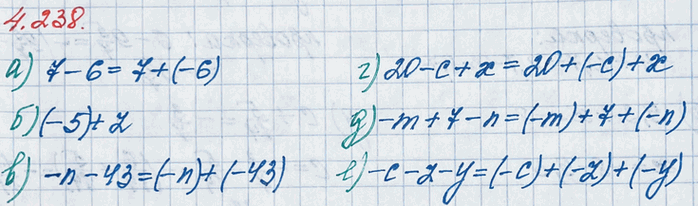 4.238.
а) 7 - 6 = 7 + (-6)
б) (-5) + z
в) -n - 43 = (-n) + (-43)
г) 20 - c + x = 20 + (-c) + x
д) -m + 7 - n = (-m) + 7 + (-n)
е) -c - z - y = (-c) + (-z) + (-y)